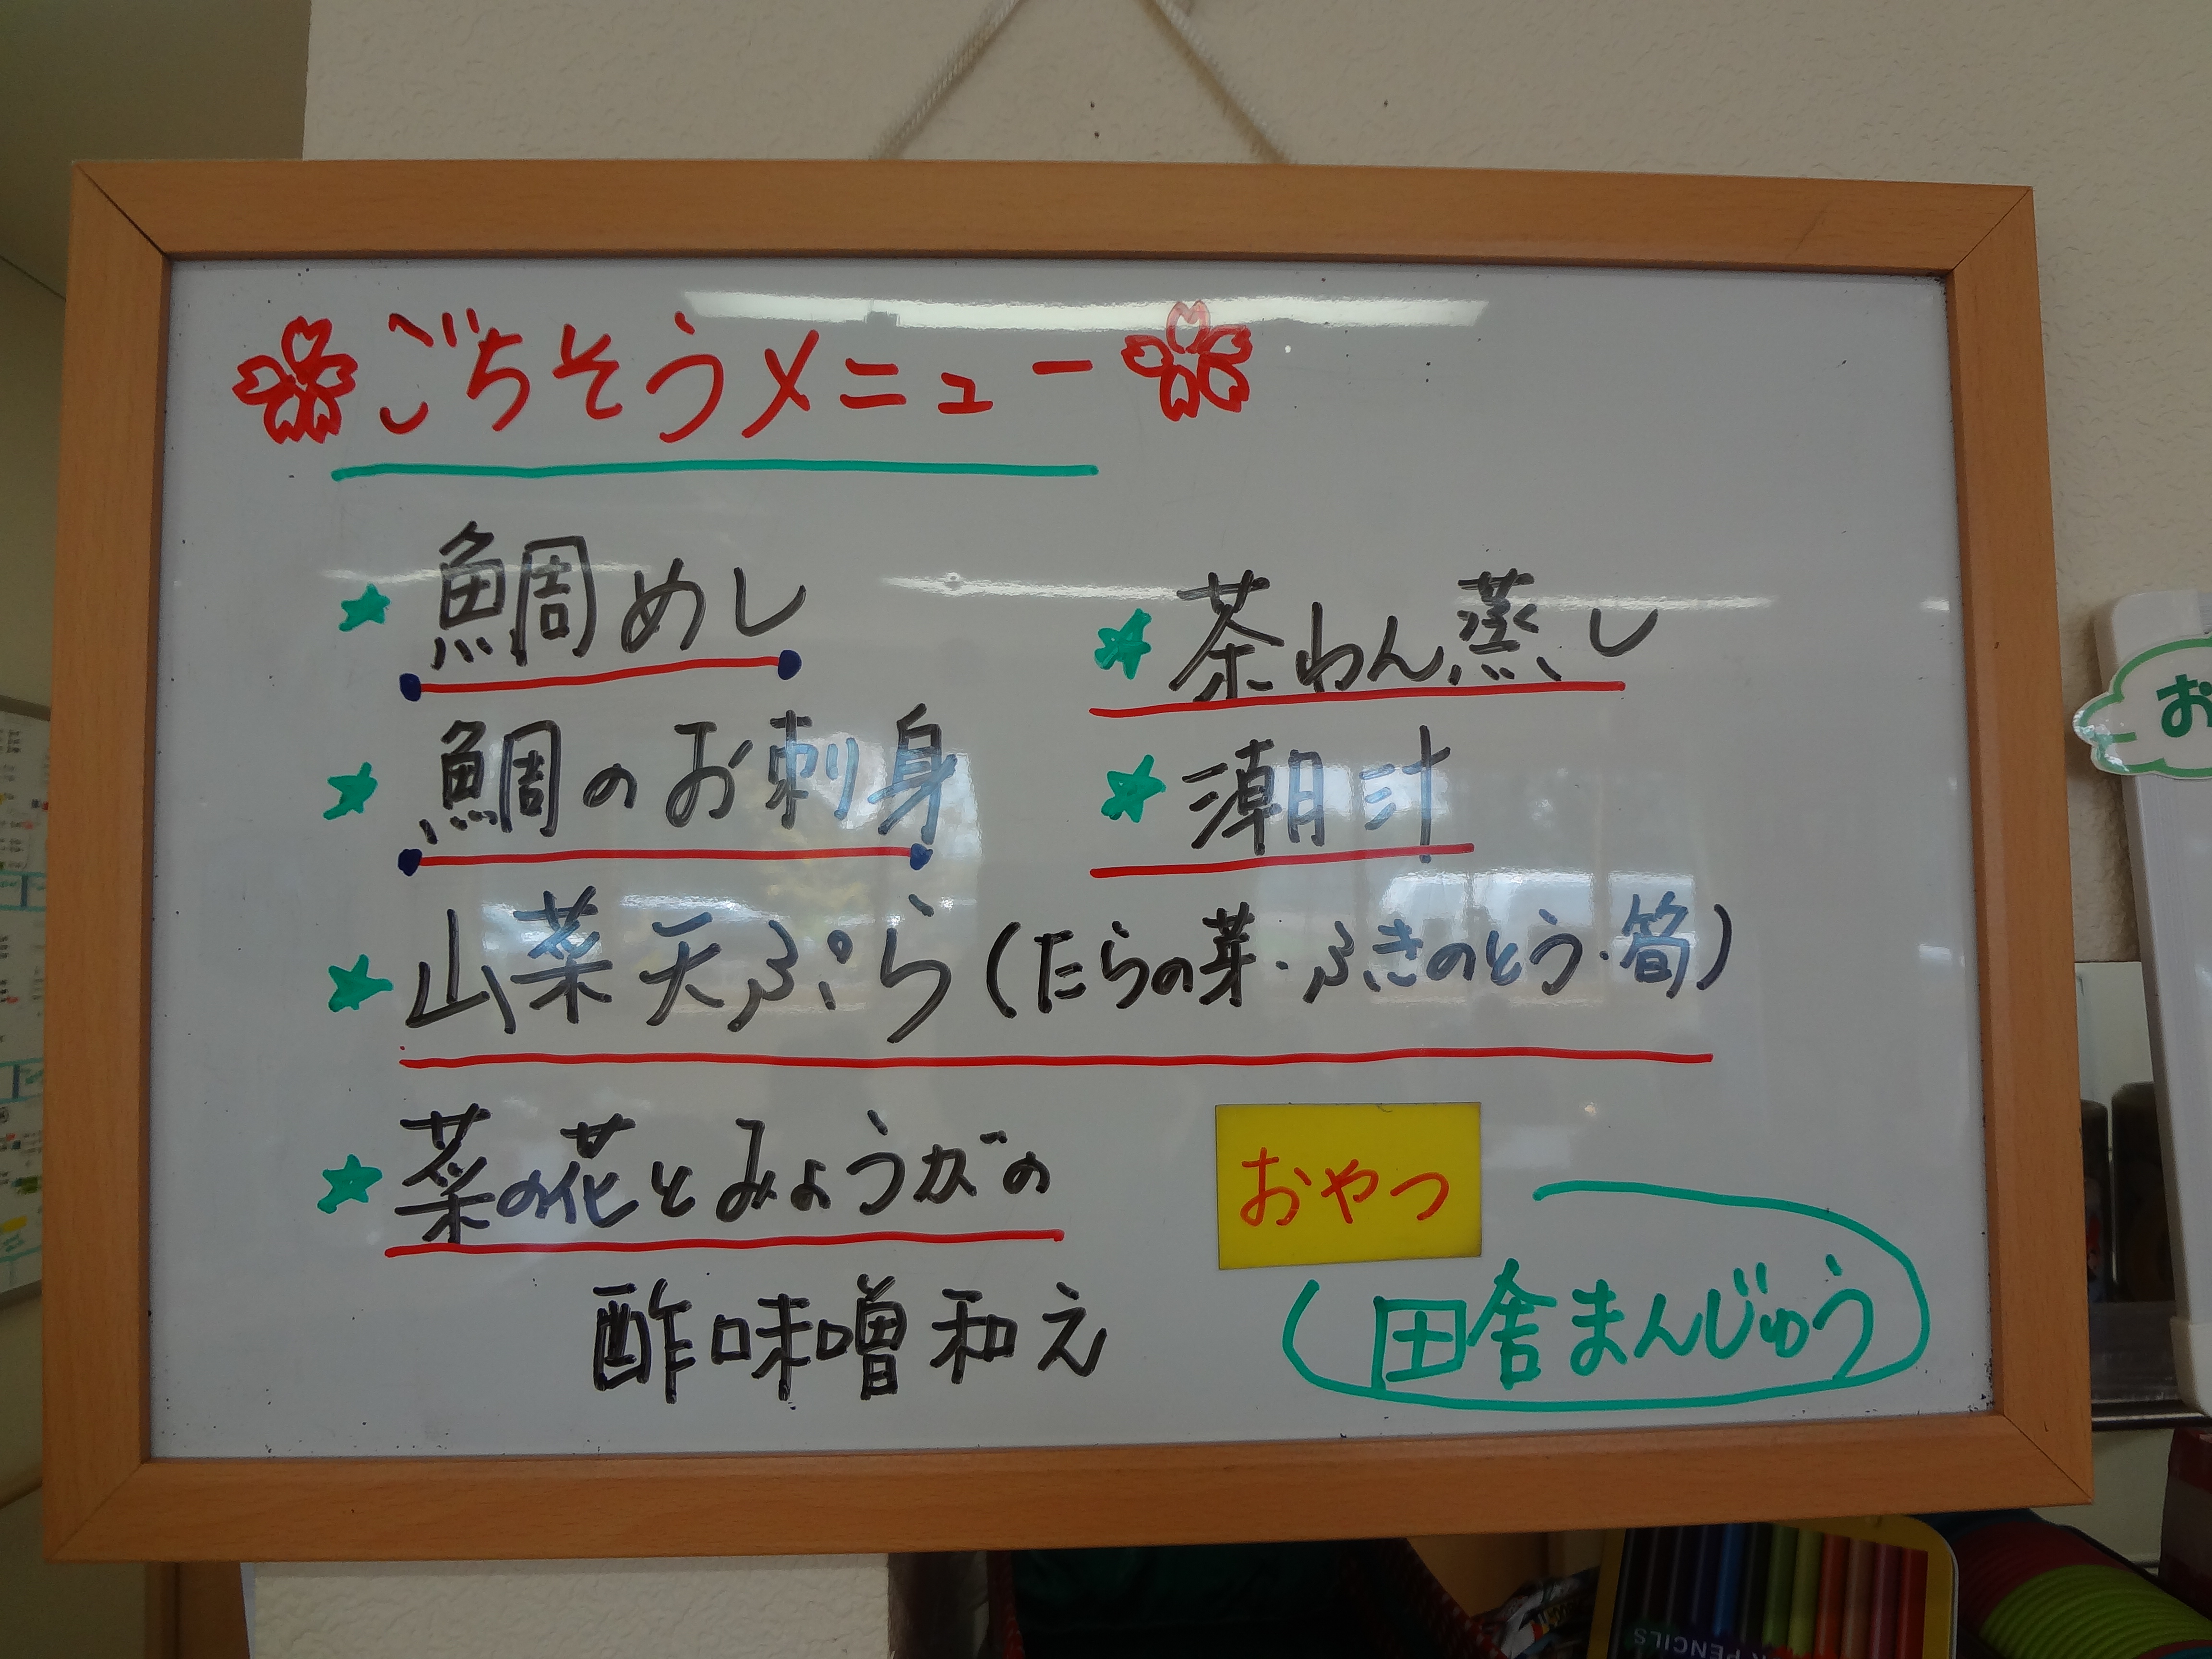 ごちそうメニュー
鯛めし
茶わん蒸し
鯛のお刺身
潮汁
山菜天ぷら(たらの芽・ふきのとう・筍)
菜の花とみょうがの
酢味噌和え
おやつ
田舎まんじゅう
お
PENCILS